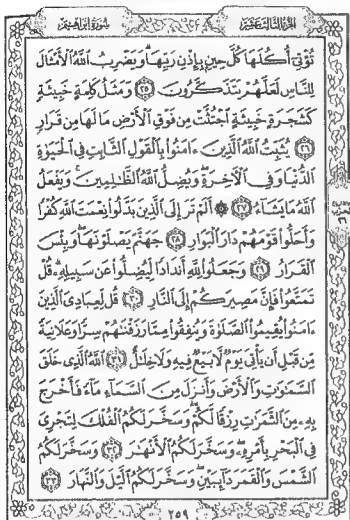 سورة إبراهيم الجزء الثالث عشر
تُؤْتِىٓ أُكُلَهَا كُلَّ حِينٍۭ بِإِذْنِ رَبِّهَا ۗ وَيَضْرِبُ ٱللَّهُ ٱلْأَمْثَالَ
لِلنَّاسِ لَعَلَّهُمْ يَتَذَكَّرُونَ ٢٥ وَمَثَلُ كَلِمَةٍ خَبِيثَةٍ
كَشَجَرَةٍ خَبِيثَةٍ ٱجْتُثَّتْ مِن فَوْقِ ٱلْأَرْضِ مَا لَهَا مِن قَرَارٍ
٢٦ يُثَبِّتُ ٱللَّهُ ٱلَّذِينَ ءَامَنُوا۟ بِٱلْقَوْلِ ٱلثَّابِتِ فِى ٱلْحَيَوٰةِ
ٱلدُّنْيَا وَفِى ٱلْءَاخِرَةِ ۖ وَيُضِلُّ ٱللَّهُ ٱلظَّـٰلِمِينَ ۚ وَيَفْعَلُ
ٱللَّهُ مَا يَشَآءُ ٢٧ ۞ أَلَمْ تَرَ إِلَى ٱلَّذِينَ بَدَّلُوا۟ نِعْمَتَ ٱللَّهِ كُفْرًا
وَأَحَلُّوا۟ قَوْمَهُمْ دَارَ ٱلْبَوَارِ ٢٨ جَهَنَّمَ يَصْلَوْنَهَا ۖ وَبِئْسَ
ٱلْقَرَارُ ٢٩ وَجَعَلُوا۟ لِلَّهِ أَندَادًا لِّيُضِلُّوا۟ عَن سَبِيلِهِۦ ۗ قُلْ
تَمَتَّعُوا۟ فَإِنَّ مَصِيرَكُمْ إِلَى ٱلنَّارِ ٣٠ قُل لِّعِبَادِىَ ٱلَّذِينَ
ءَامَنُوا۟ يُقِيمُوا۟ ٱلصَّلَوٰةَ وَيُنفِقُوا۟ مِمَّا رَزَقْنَـٰهُمْ سِرًّا وَعَلَانِيَةً
مِّن قَبْلِ أَن يَأْتِىَ يَوْمٌ لَّا بَيْعٌ فِيهِ وَلَا خِلَـٰلٌ ٣١ ٱللَّهُ ٱلَّذِى خَلَقَ
ٱلسَّمَـٰوَٰتِ وَٱلْأَرْضَ وَأَنزَلَ مِنَ ٱلسَّمَآءِ مَآءً فَأَخْرَجَ
بِهِۦ مِنَ ٱلثَّمَرَٰتِ رِزْقًا لَّكُمْ ۖ وَسَخَّرَ لَكُمُ ٱلْفُلْكَ لِتَجْرِىَ
فِى ٱلْبَحْرِ بِأَمْرِهِۦ ۖ وَسَخَّرَ لَكُمُ ٱلْأَنْهَـٰرَ ٣٢ وَسَخَّرَ لَكُمُ
ٱلشَّمْسَ وَٱلْقَمَرَ دَآئِبَيْنِ ۖ وَسَخَّرَ لَكُمُ ٱلَّيْلَ وَٱلنَّهَارَ ٣٣
٢٥٩